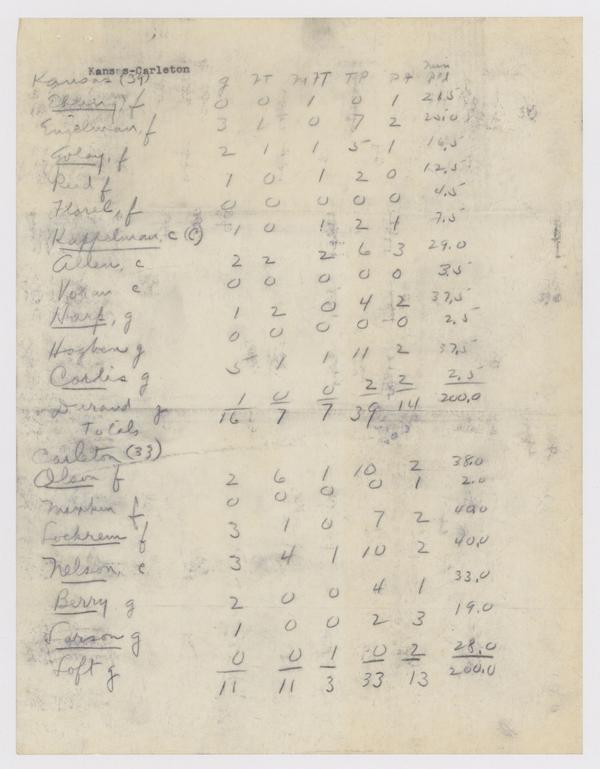 Kansas-Carleton
Kansas (39) g FT MFT TP PF Min Pld
Ebling, f 0 0 1 0 1 21.5
Engelman, f 3 1 0 7 2 20.0
Golay, f 2 1 1 5 1 16.5
Reid f 1 0 1 2 0 12.5
Florell, f 0 0 0 0 0 4.5
Kappelman, c (C) 1 0 1 2 1 7.5
Allen, c 2 2 2 6 3 29.0
Voran c 0 0 0 0 0 3.5
Harp, g 1 2 0 4 2 37.5
Hogben g 0 0 0 0 0 2.5
Corlis g 5 1 1 11 2 37.5
Durand g 1 0 0 2 2 2.5
Totals 16 7 7 39 14 200.0
Carleton (33)
Olson f 2 6 1 10 2 38.0
f 0 0 0 0 1 2.0
Lockrem f 3 1 0 7 2 40.0
Nelson, c 3 4 1 10 2 40.0
Berry g 2 0 0 4 1 33.0
Larson g 1 0 0 2 3 19.0
Toft g 0 0 1 0 2 28.0
11 11 3 33 13 200.0